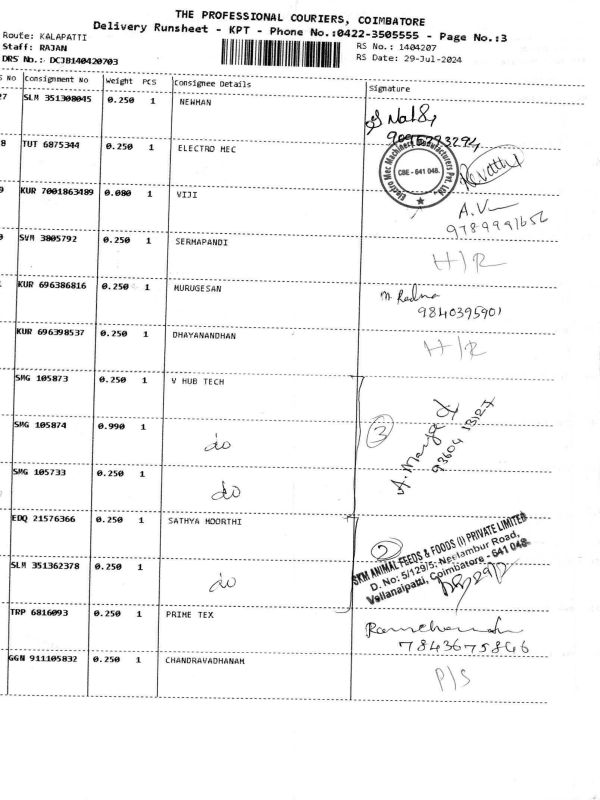 THE PROFESSIONAL COURIERS, COIMBATORE
Delivery Runsheet - KPT - Phone No.:0422-3505555 - Page No.:3
Route: KALAPATTI
Staff: RAJAN
DRS No.: DCJB140420703
RS No.: 1404207
RS Date: 29-Jul-2024
S No Consignment No Weight PCS Consignee Details Signature
27 SLM 351308045 0.250 1 NEWMAN
9095793294
8 TUT 6875344 0.250 1 ELECTRO MEC
Electro Mec Machinery Manufacturers Pvt. Ltd
CBE - 641 048.
Revathi
9 KUR 7001863489 0.080 1 VIJI
A.V
9789991656
0 SVM 3805792 0.250 1 SERMAPANDI H/R
KUR 696386816 0.250 1 MURUGESAN
9840395901
KUR 696398537 0.250 1 DHAYANANDHAN H/R
SMG 105873 0.250 1 V HUB TECH
SMG 105874 0.990 1 do
3
93604 13127
SMG 105733 0.250 1 do
EDQ 21576366 0.250 1 SATHYA MOORTHI
2
SKM ANIMAL FEEDS & FOODS (I) PRIVATE LIMITED
D. No: 5/129/5, Neelambur Road,
Vellanaipatti, Coimbatore - 641 048.
SLM 351362378 0.250 1 do
TRP 6816093 0.250 1 PRIME TEX
7843675866
GGN 911105832 0.250 1 CHANDRAVADHANAM P/S